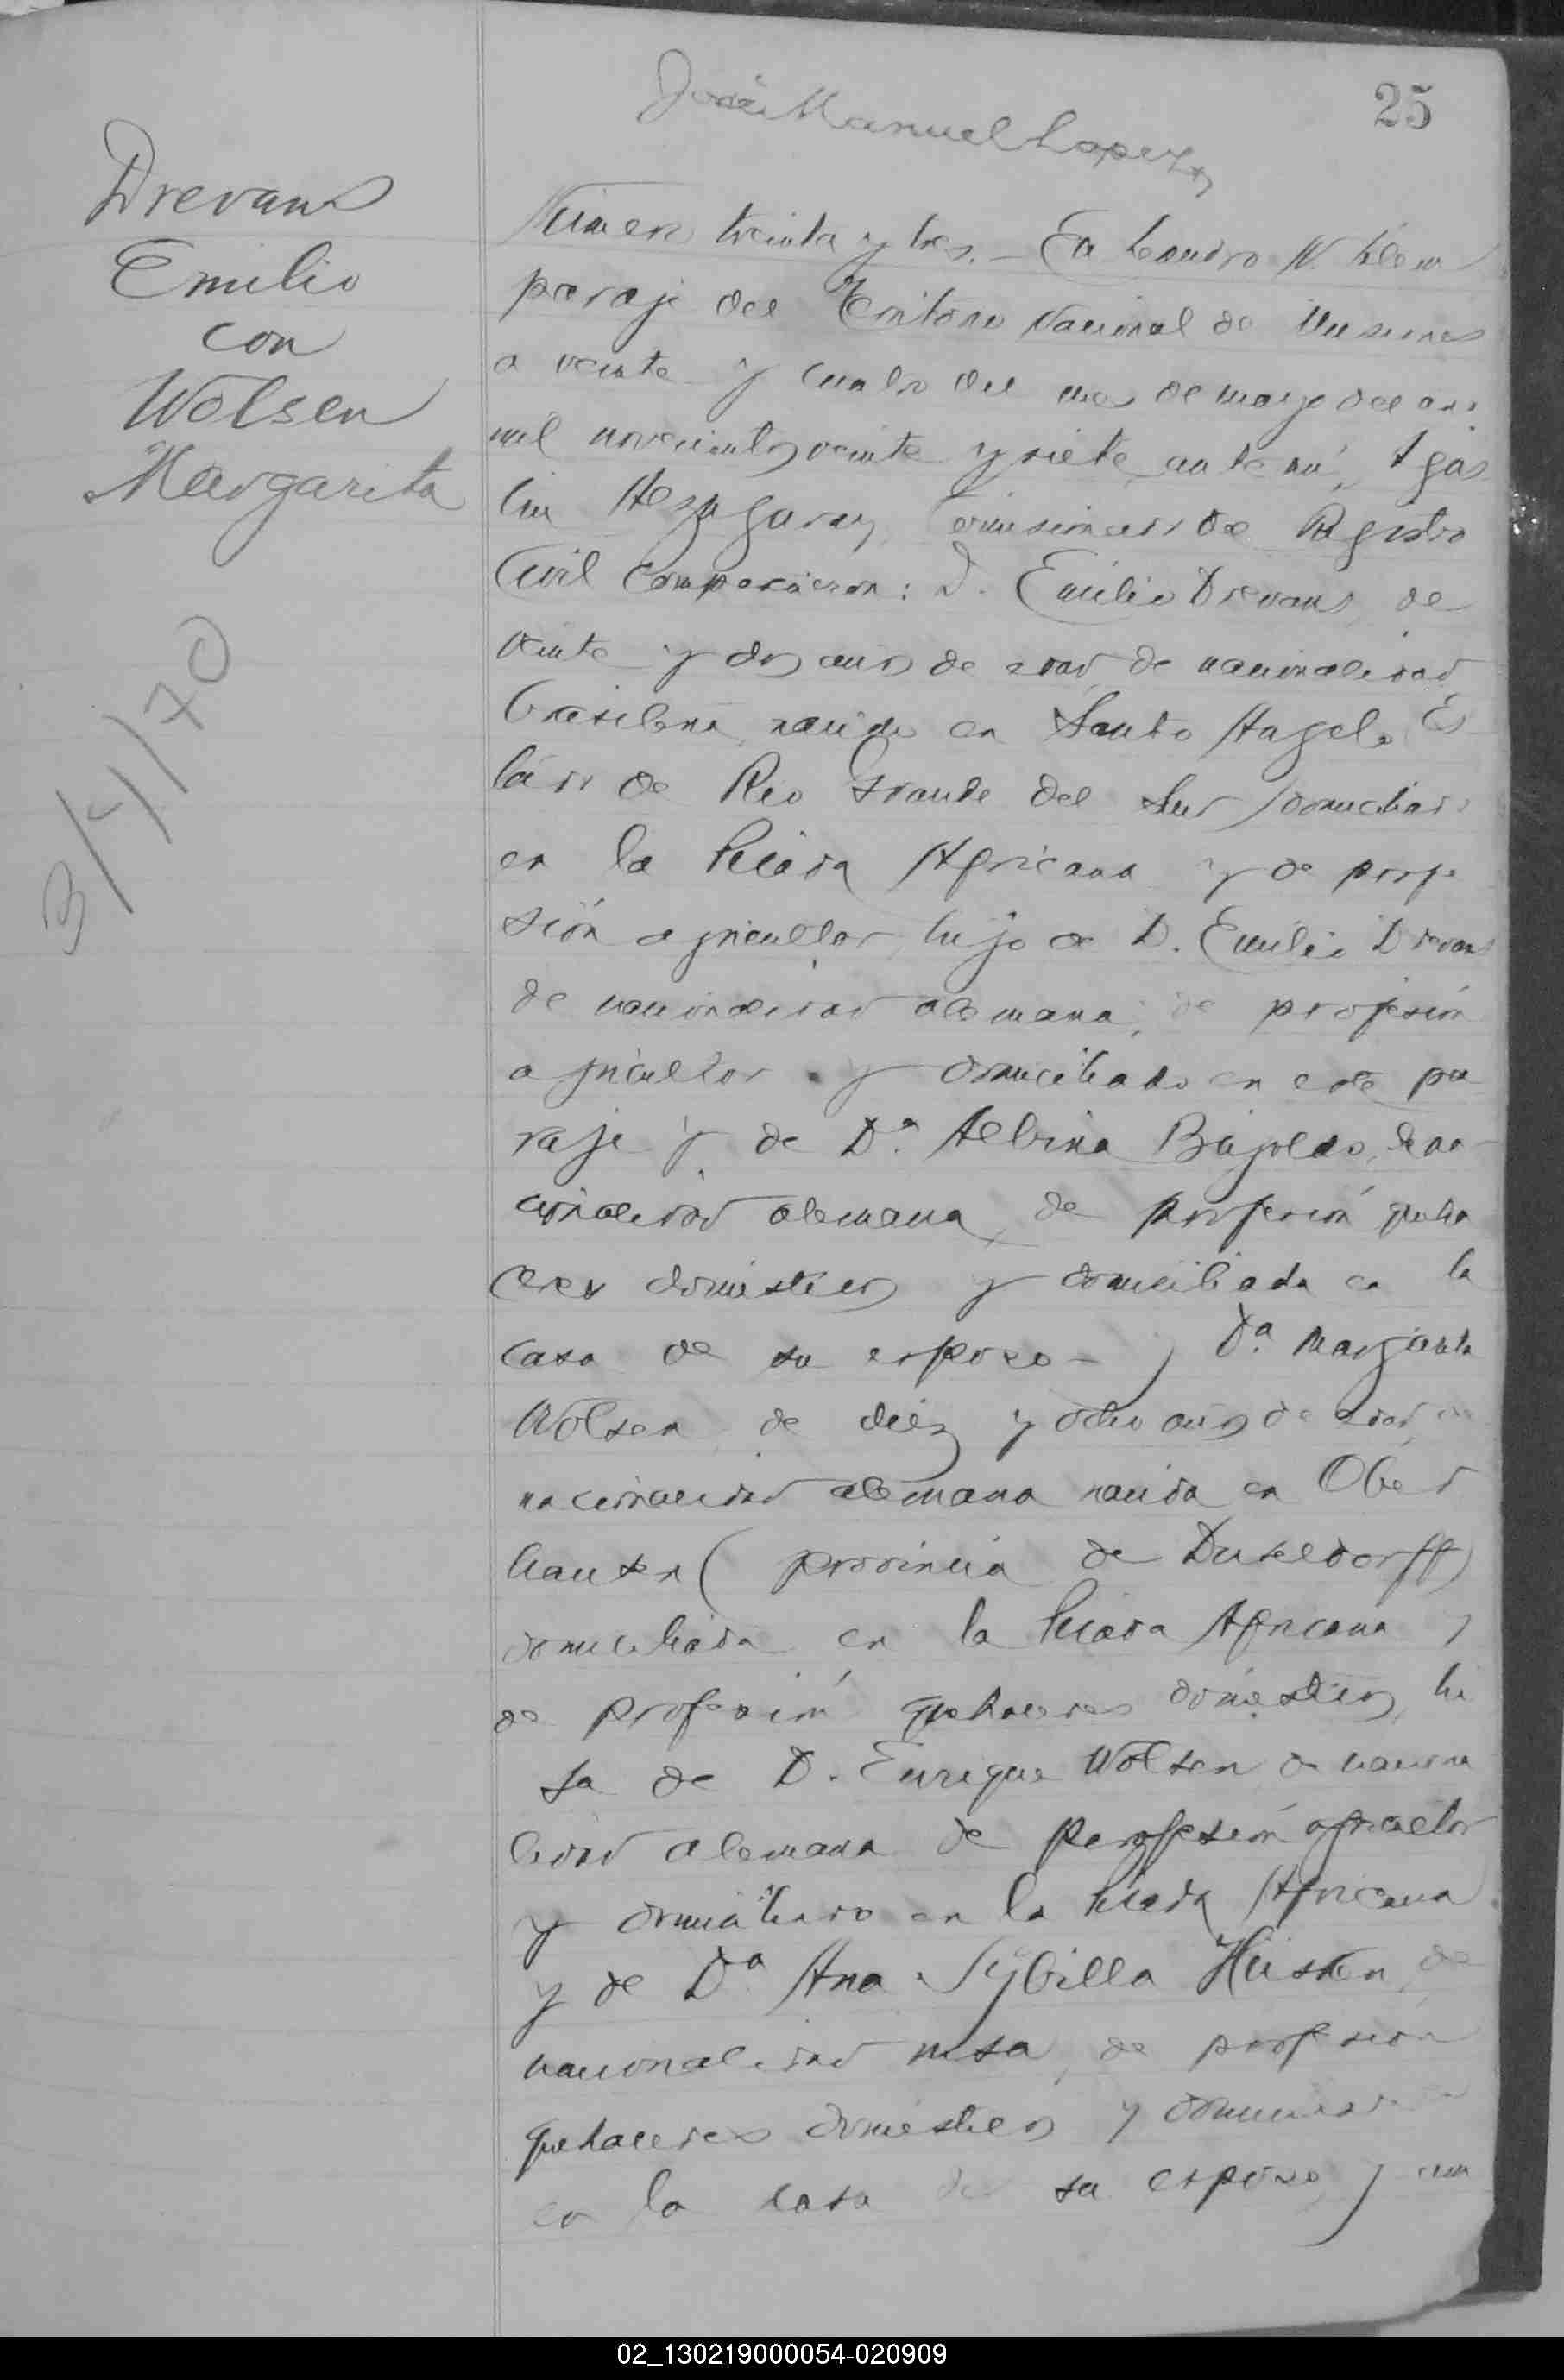 25
José Manuel Lopez
Drevans
Emilio
con
Wolsen
Margarita
3/4/70
Número treinta y tres. — En Leandro N. Alem
paraje del Territorio Nacional de Misiones
a veinte y cuatro del mes de mayo del año
mil novecientos veinte y siete, ante mí, Agus
tin Alzagaray, Comisionado de Registro
Civil Comparecieron: D. Emilio Drevans, de
veinte y dos años de edad, de nacionalidad
brasileña, nacido en Santo Angelo, Es
tado de Rio Grande del Sur, domiciliado
en la Picada Africana y de profe
sión agricultor, hijo de D. Emilio Drevans
de nacionalidad alemana, de profesión
agricultor y domiciliado en este pa
raje y de Da. Albina de na
cionalidad alemana, de profesión queha
ceres domésticos y domiciliada en la
casa de su esposo — y Da. Margarita
Wolsen, de diez y ocho años de edad, de
nacionalidad alemana nacida en Ober
hausen (provincia de Duseldorff)
domiciliada en la Picada Africana y
de profesión quehaceres domésticos, hi
ja de D. Enrique Wolsen de naciona
lidad alemana de profesión agricultor
y domiciliado en la Picada Africana
y de Da. Ana Sybilla Huisken, de
nacionalidad rusa, de profesión
quehaceres domésticos y domiciliada
en la casa de su esposo, y
02_130219000054-020909